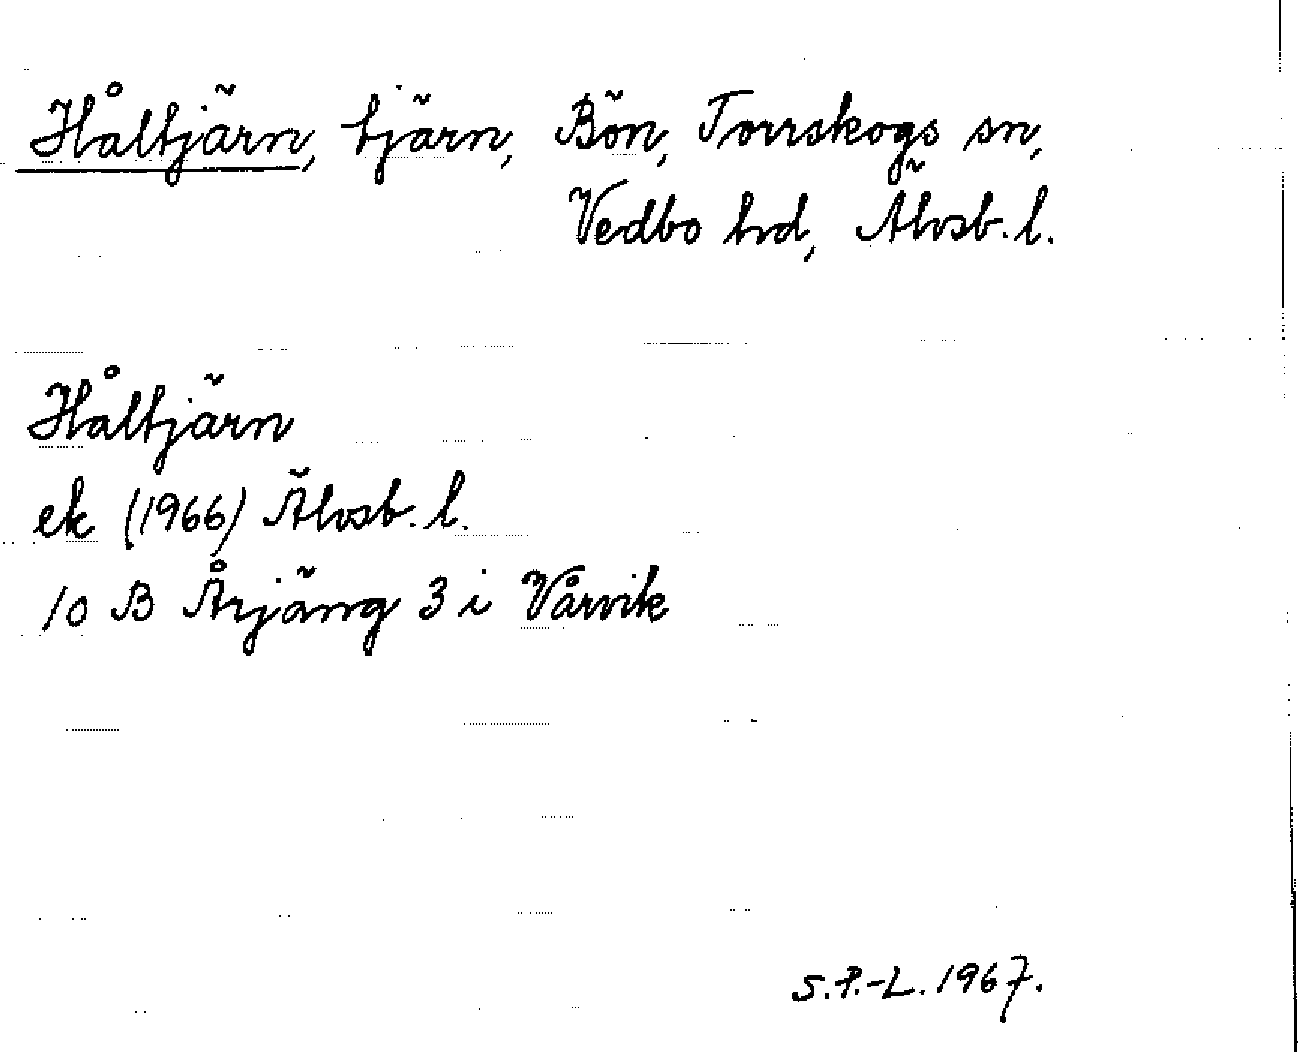 Håltjärn, tjärn, Bön, Torrskogs sn,
Vedbo hd, Älvsb. l.
Håltjärn
ek (1966) Älvsb. l.
10 B Årjäng 3 i Vårvik
S.P.-L. 1967.